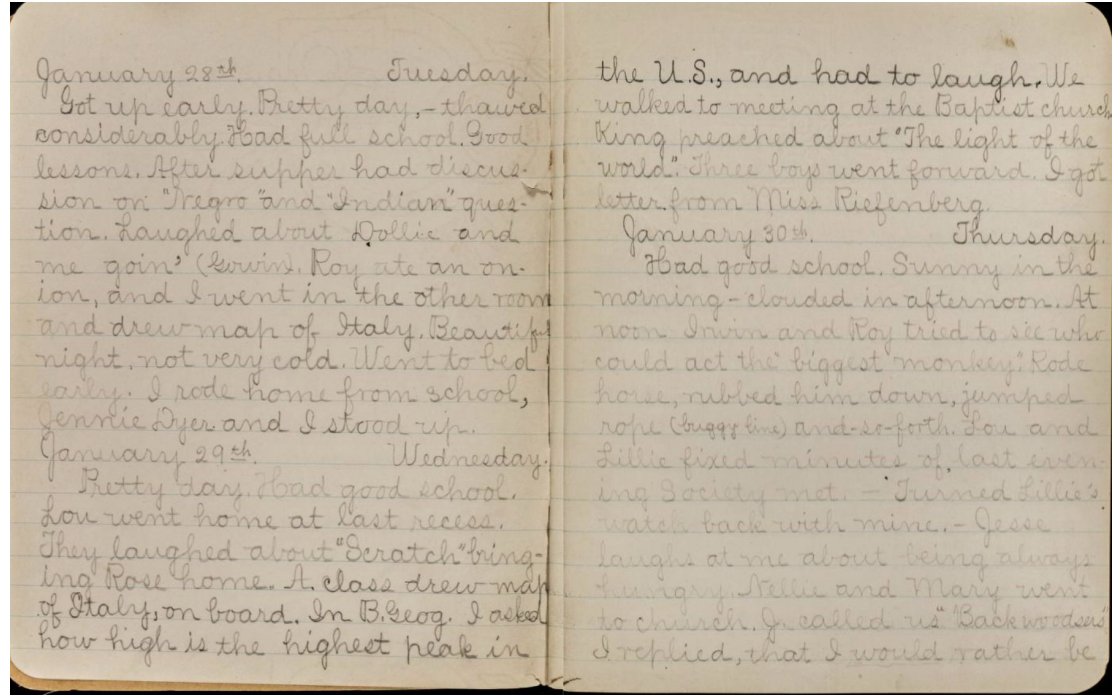 January 28th. Tuesday.
Got up early. Pretty day, - thawed
considerably. Had full school. Good
lessons. After supper had discus-
sion on "Negro" and "Indian" ques-
tion. Laughed about Dollie and
me goin' (Erwin). Roy ate an on-
ion, and I went in the other room
and drew map of Italy. Beautiful
night, not very cold. Went to bed
early. I rode home from school,
Jennie Dyer and I stood up.
January 29th. Wednesday.
Pretty day. Had good school.
Lou went home at last recess.
They laughed about "Scratch" bring-
ing Rose home. A. class drew map
of Italy, on board. In B. Geog. I asked
how high is the highest peak in
the U.S., and had to laugh. We
walked to meeting at the Baptist church
King preached about "The light of the
world." Three boys went forward. I got
letter from Miss Riefenberg.
January 30th. Thursday.
Had good school. Sunny in the
morning - clouded in afternoon. At
noon Irvin and Roy tried to see who
could act the biggest "monkey". Rode
horse, rubbed him down, jumped
rope (buggy line) and-so-forth. Lou and
Lillie fixed minutes of last even-
ing Society met. - Turned Lillie's
watch back with mine. - Jesse
laughs at me about being always
hungry. Nellie and Mary went
to church. called us "Backwoodses"
I replied, that I would rather be